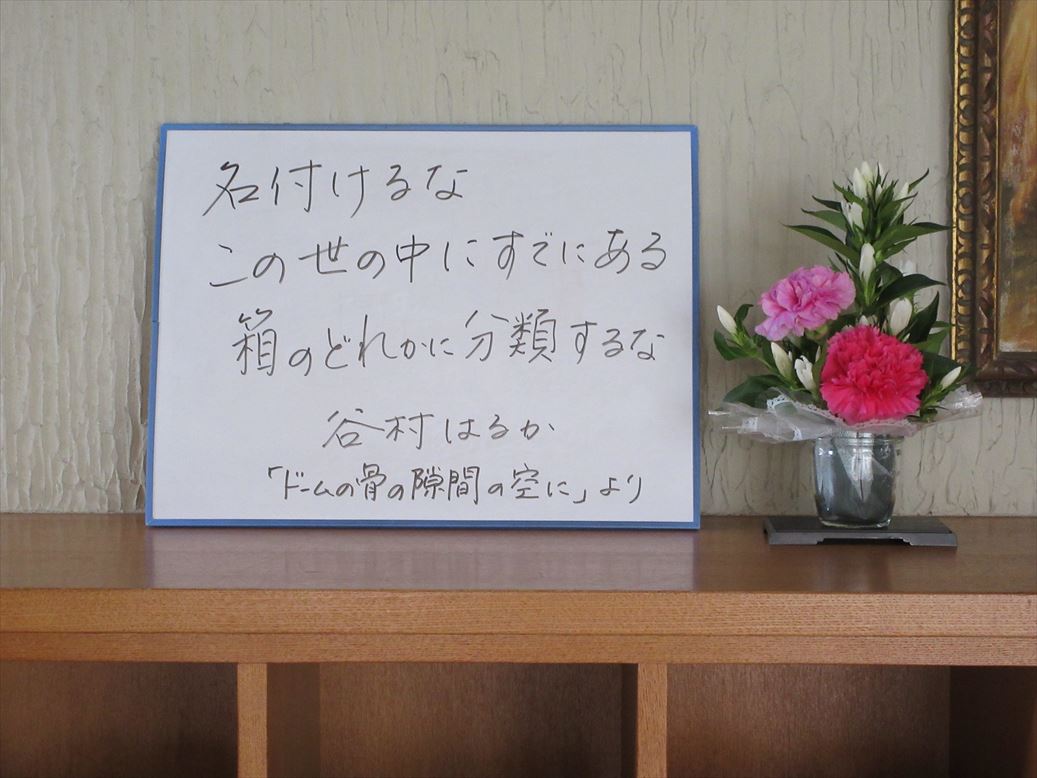 名付けるな
この世の中にすでにある
箱のどれかに分類するな
谷村はるか
「ドームの骨の隙間の空に」より